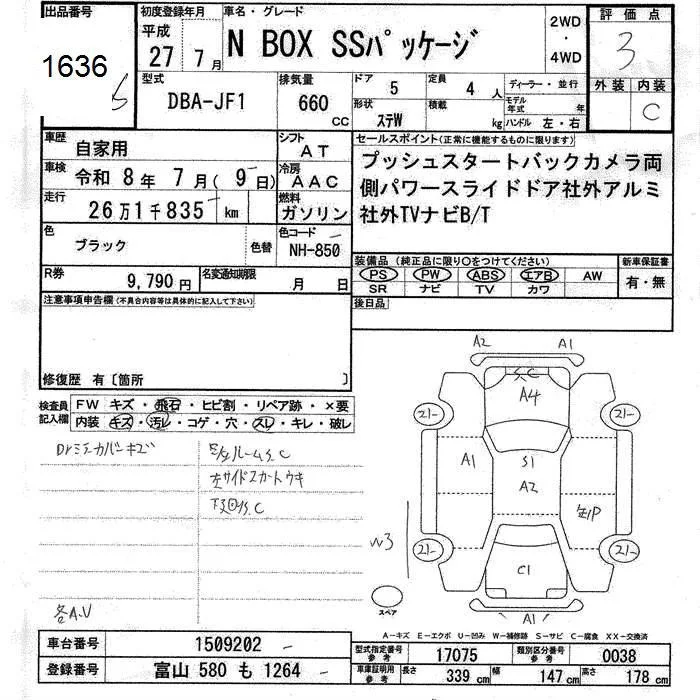 出品番号 初度登録年月 車名・グレード 評価点
1636 平成 27 7月 N BOX SSパッケージ 2WD・4WD 3
型式 DBA-JF1 排気量 660 CC ドア 5 定員 4人 ディーラー・並行 外装 内装
形状 ステW 積載 kg モデル年式 年 ハンドル 左・右 C
車歴 自家用 シフト AT セールスポイント(正常に機能するものに限ります)
車検 令和 8年 7月(9日) 冷房 AAC プッシュスタートバックカメラ両
走行 26万1千835 km 燃料 ガソリン 側パワースライドドア社外アルミ
社外TVナビB/T
色 ブラック 色替 色コード NH-850
装備品(純正品に限り○をつけてください) 新車保証書
PS PW ABS エアB AW 有・無
SR ナビ TV カワ
R券 9,790円 名変通知期限 月 日
後日品
注意事項申告欄(不具合内容等は具体的に記入して下さい)
修復歴 有〔箇所 〕
検査員記入欄 FW キズ・飛石・ヒビ割・リペア跡・×要
内装 キズ・汚レ・コゲ・穴・スレ・キレ・破レ
Drミラーカバーキズ
ルームS.C
左サイドスカートウキ
下廻りS.C
各A.V
A2 A1
S.C
A4
21- 21-
A1 S1
A2
W3
21- 21-
C1
A1
スペア
A-キズ E-エクボ U-凹み W-補修跡 S-サビ C-腐食 XX-交換済
車台番号 1509202 型式指定番号 参考 17075 類別区分番号 参考 0038
登録番号 富山 580 も 1264 車庫証明用 参考 長さ 339 cm 幅 147 cm 高さ 178 cm